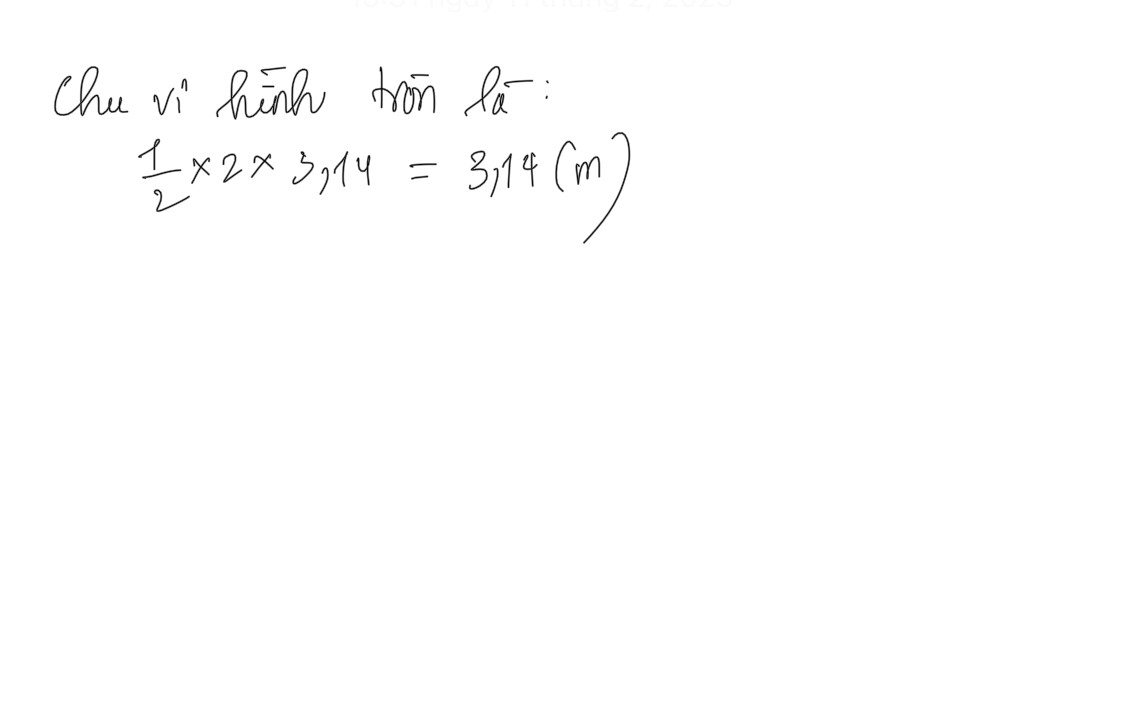 Chu vi hình tròn là:
1/2 × 2 × 3,14 = 3,14 (m)